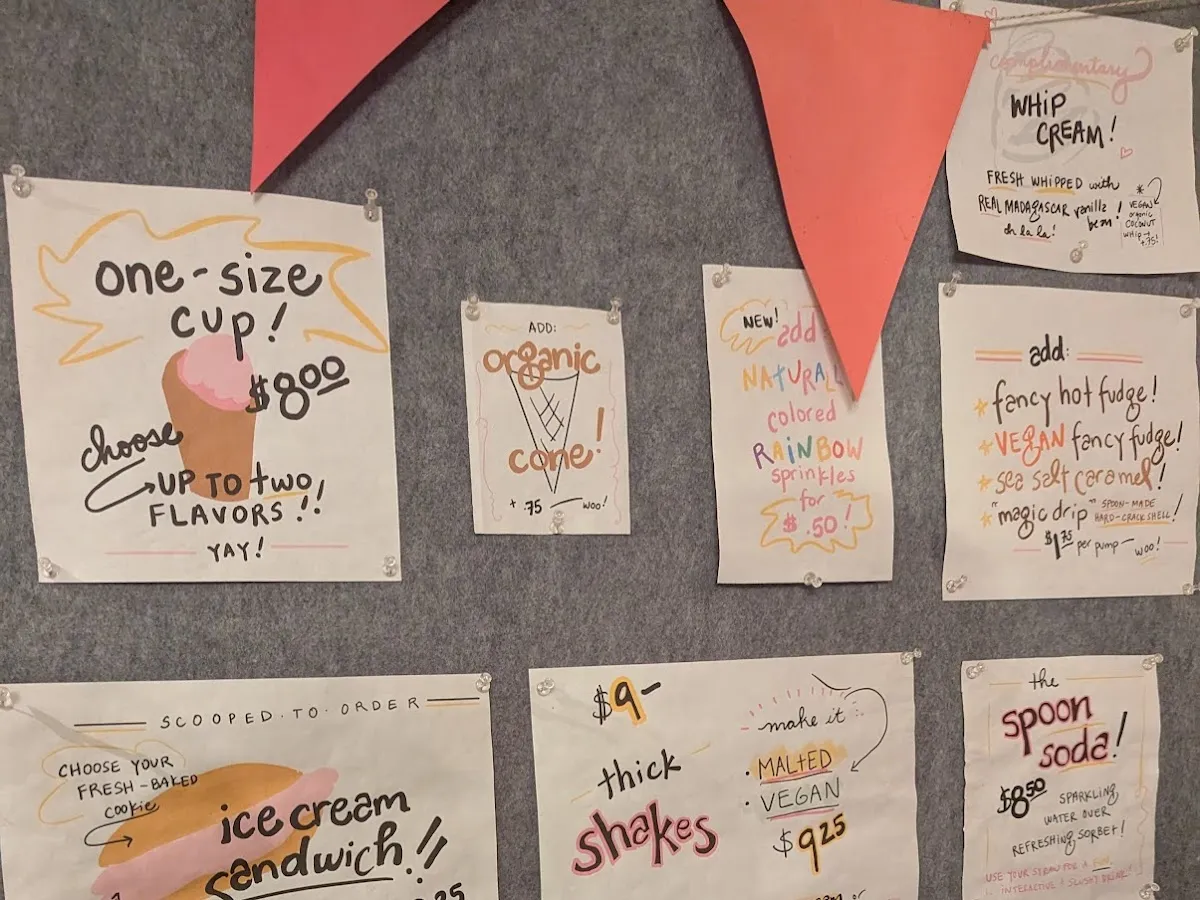 complimentary
WHIP
CREAM!
FRESH WHIPPED with
REAL MADAGASCAR vanilla
bean!
oh la la!
*
VEGAN
organic
COCONUT
whip +
+.75!
one-size
cup!
$8.00
choose
UP TO two
FLAVORS!!
YAY!
ADD:
organic
cone!
+ .75
woo!
NEW! add
NATURAL
colored
RAINBOW
sprinkles
for
$.50!
add:
fancy hot fudge!
VEGAN fancy fudge!
sea salt caramel!
"magic drip" SPOON-MADE
HARD-CRACK SHELL!
$1.75 per pump — woo!
SCOOPED·TO·ORDER
CHOOSE YOUR
FRESH-BAKED
cookie
ice cream
sandwich!!
25
$9-
thick
shakes
make it
· MALTED
· VEGAN
$9.25
or
the
spoon
soda!
$8.50
SPARKLING
WATER OVER
REFRESHING SORBET!
USE YOUR STRAW FOR A FUN,
INTERACTIVE & SLUSHY DRINK!